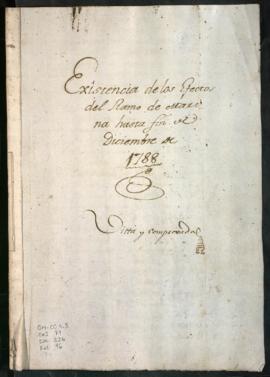 Existencia de los Efectos
del Ramo de Mari
na hasta fin de
Diciembre de
1788
Vista y comprovada
OM-CC 1.3